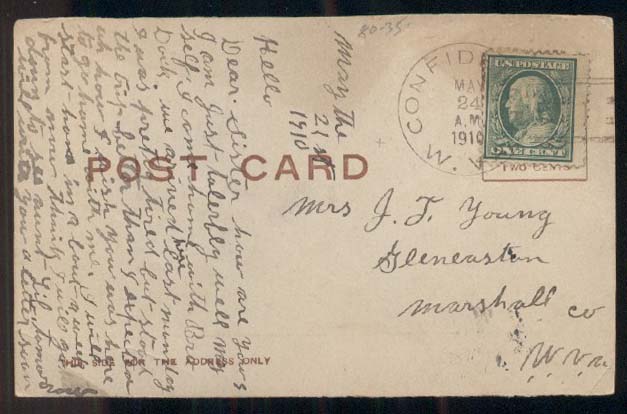 80-35
May the
21st
1910
Hello
Dear Sister how are you
I am Just tolerbly well My
self. I came home with Bro
Dock we arrived last monday
I was pretty tired but stood
the trip better than I expected
uh how I wish you was here
to go home with me. I will
start home in a bout a week
from now I think I will go
down to see aunt tomorrow
will write you a letter soon
POST CARD
THIS SIDE FOR THE ADDRESS ONLY
CONFIDENCE W. VA.
MAY
24
A.M.
1910
U.S. POSTAGE
ONE CENT
TWO CENTS
Mrs J. T. Young
Gleneaston
Marshall co
W. Va.